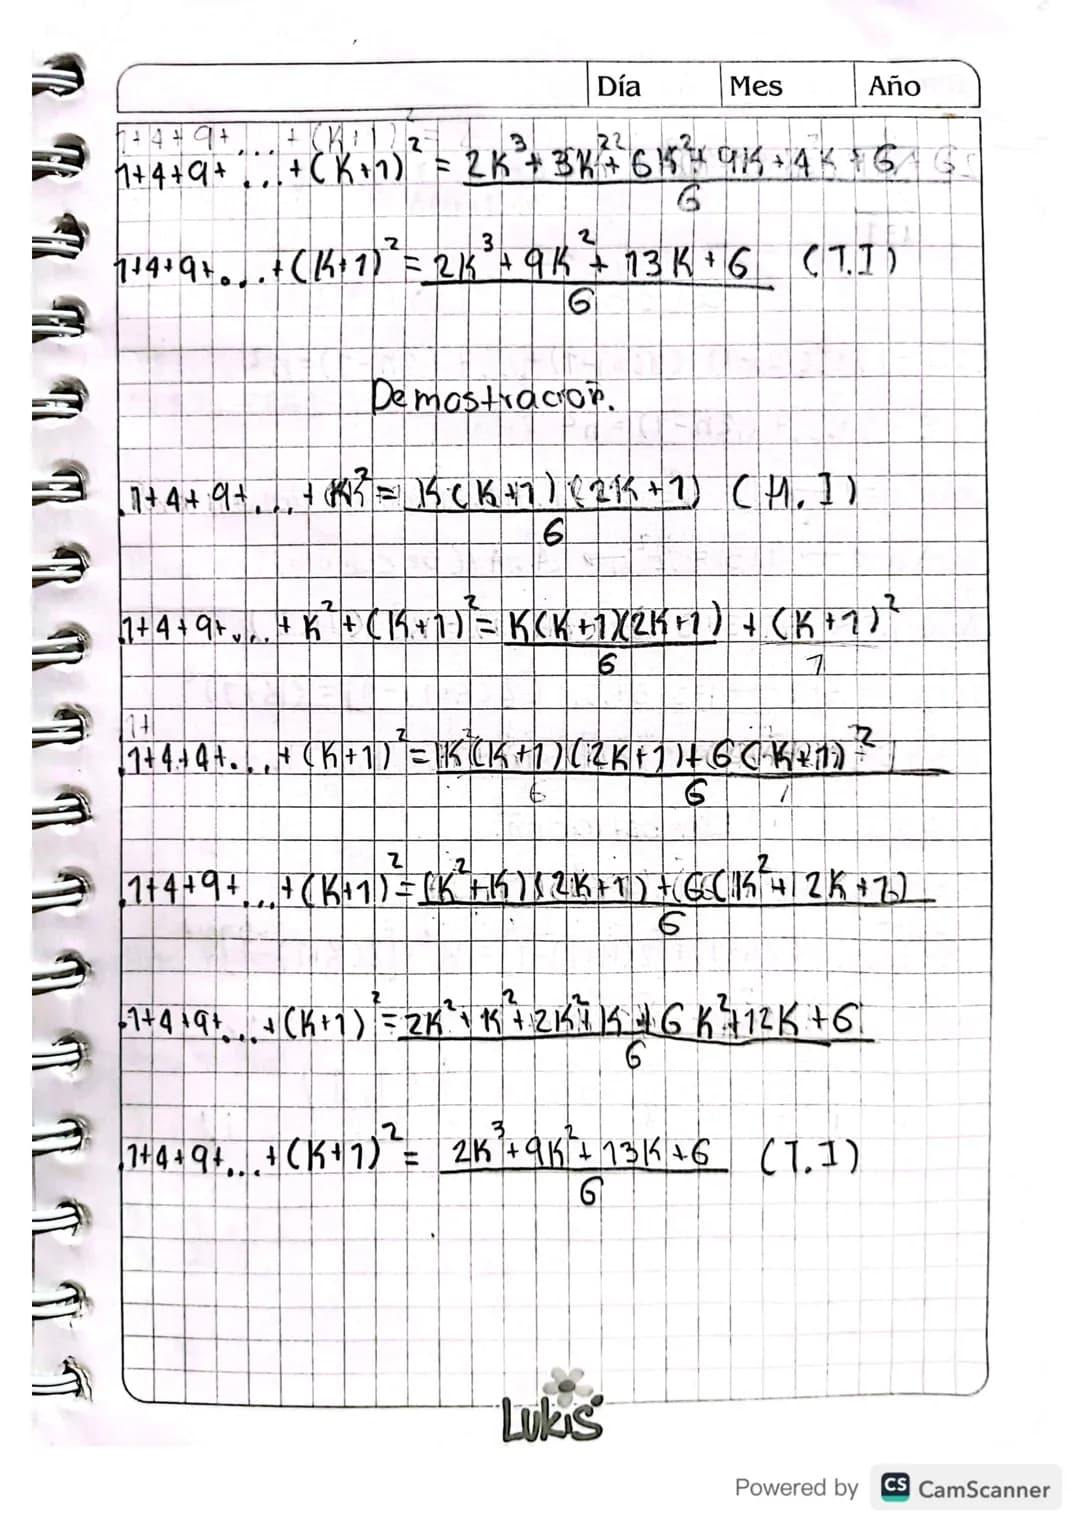 Día Mes Año
1+4+9+...+(K+1)² = 2K³+3K²+6K²+9K+4K+6
6
1+4+9+...+(K+1)² = 2K³+9K²+13K+6 (T.I)
6
Demostración.
1+4+9+...+K² = K(K+1)(2K+1) (H.I)
6
1+4+9+...+K²+(K+1)² = K(K+1)(2K+1) + (K+1)²
6 1
1+
1+4+9+...+(K+1)² = K(K+1)(2K+1)+6(K+1)²
6
1+4+9+...+(K+1)² = (K²+K)(2K+1)+(6(K²+2K+1)
6
1+4+9+...+(K+1)² = 2K²+K²+2K²+K+6K²+12K+6
6
1+4+9+...+(K+1)² = 2K³+9K²+13K+6 (T.I)
6
Lukis
Powered by CS CamScanner